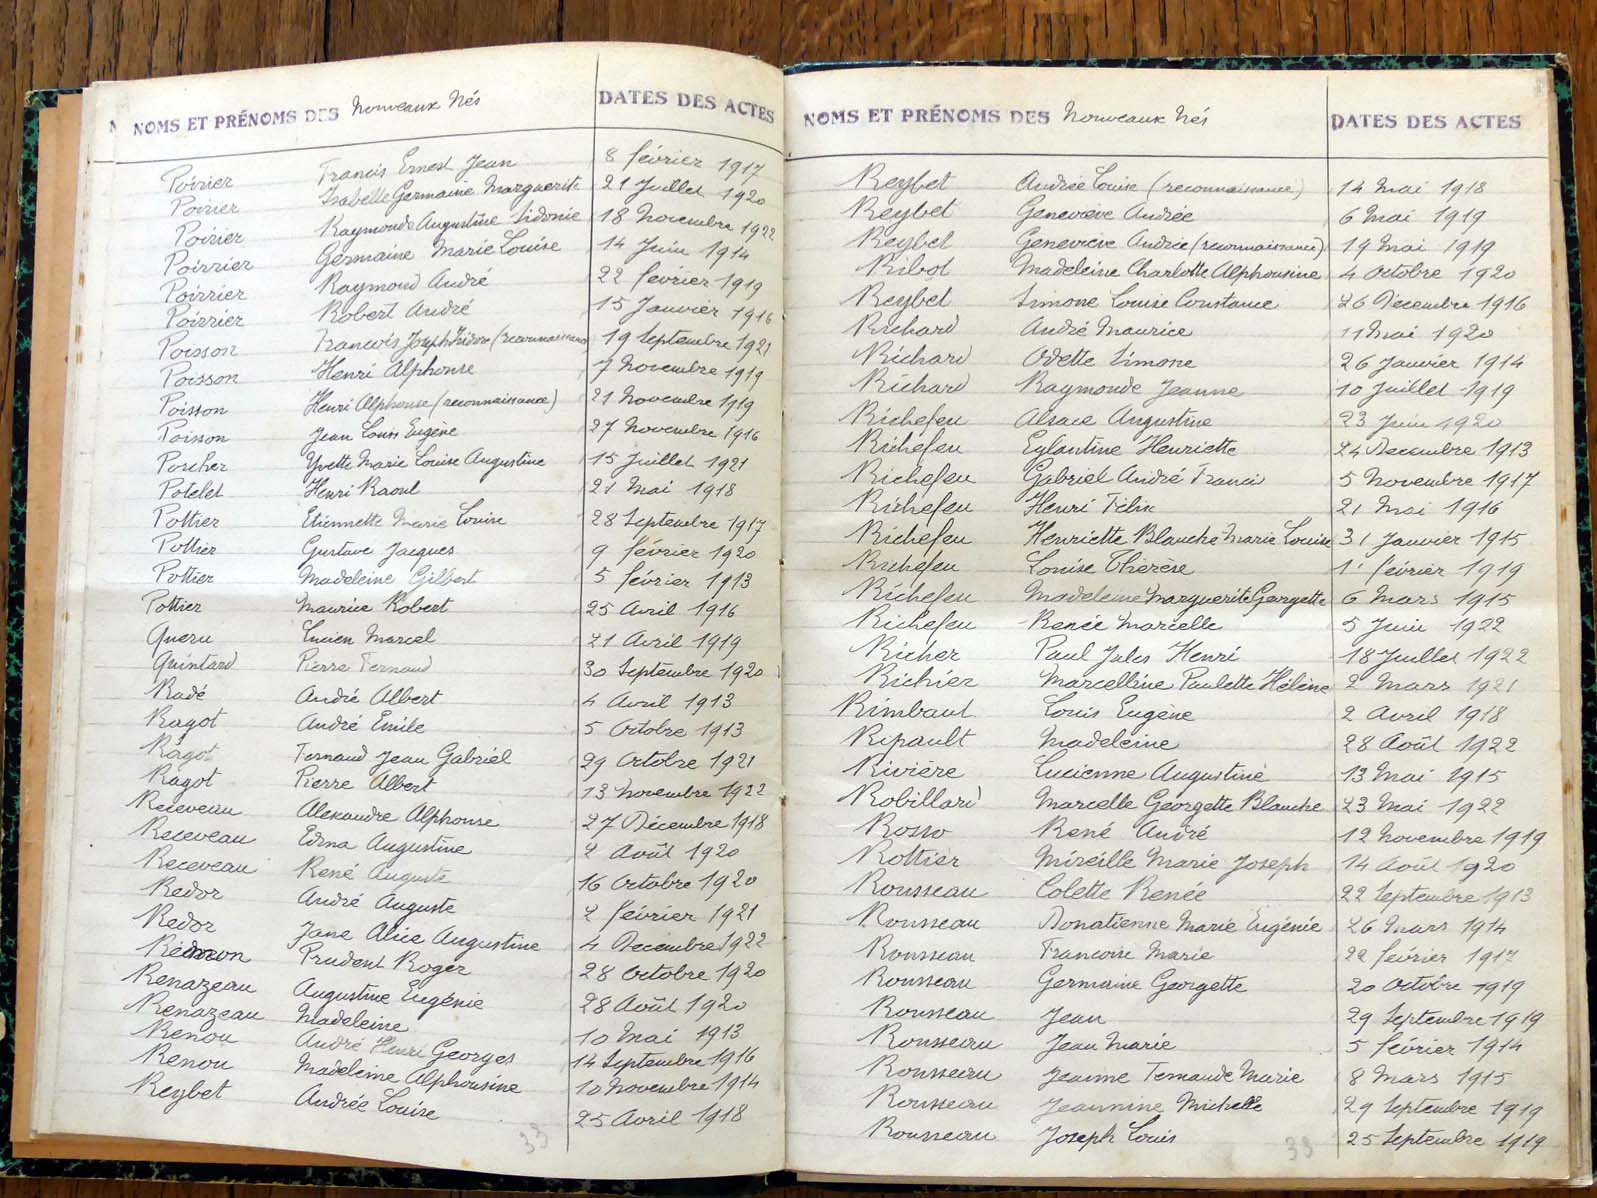 NOMS ET PRÉNOMS DES Nouveaux Nés DATES DES ACTES
Poirier Francis Ernest Jean 8 février 1917
Poirier Isabelle Germaine Marguerite 21 Juillet 1920
Poirier Raymonde Augustine Sidonie 18 Novembre 1922
Poirrier Germaine Marie Louise 14 Juin 1914
Poirrier Raymond André 22 février 1919
Poirrier Robert André 15 Janvier 1916
Poisson Francois Joseph Isidore (reconnaissance) 19 Septembre 1921
Poisson Henri Alphonse 7 Novembre 1919
Poisson Henri Alphonse (reconnaissance) 21 Novembre 1919
Poisson Jean Louis Eugène 27 Novembre 1916
Porcher Yvette Marie Louise Augustine 15 Juillet 1921
Potelet Henri Raoul 21 Mai 1918
Pottier Etiennette Marie Louise 28 Septembre 1917
Pottier Gustave Jacques 9 février 1920
Pottier Madeleine Gilbert 5 février 1913
Pottier Maurice Robert 25 Avril 1916
Queru Lucien Marcel 21 Avril 1919
Quintard Pierre Fernand 30 Septembre 1920
Radé André Albert 4 Avril 1913
Ragot André Emile 5 Octobre 1913
Ragot Fernand Jean Gabriel 29 Octobre 1921
Ragot Pierre Albert 13 Novembre 1922
Receveau Alexandre Alphonse 27 Décembre 1918
Receveau Edna Augustine 2 Août 1920
Receveau René Auguste 16 Octobre 1920
Redor André Auguste 2 février 1921
Redor Jane Alice Augustine 4 Decembre 1922
Rémon Prudent Roger 28 Octobre 1920
Renazeau Augustine Eugénie 28 Août 1920
Renazeau Madeleine 10 Mai 1913
Renou André Henri Georges 14 Septembre 1916
Renou Madeleine Alphonsine 10 Novembre 1914
Reybet Andrée Louise 25 Avril 1918
33
NOMS ET PRÉNOMS DES Nouveaux Nés DATES DES ACTES
Reybet Andrée Louise (reconnaissance) 14 Mai 1918
Reybet Geneviève Andrée 6 Mai 1919
Reybet Geneviève Andrée (reconnaissance) 19 Mai 1919
Ribot Madeleine Charlotte Alphonsine 4 Octobre 1920
Reybet Simone Louise Constance 26 Décembre 1916
Richard André Maurice 11 Mai 1920
Richard Odette Simone 26 Janvier 1914
Richard Raymonde Jeanne 10 Juillet 1919
Richefeu Alsace Augustine 23 Juin 1920
Richefeu Eglantine Henriette 24 Decembre 1913
Richefeu Gabriel André Francis 5 Novembre 1917
Richefeu Henri Félix 21 Mai 1916
Richefeu Henriette Blanche Marie Louise 31 Janvier 1915
Richefeu Louise Thérèse 1er février 1919
Richefeu Madeleine Marguerite Georgette 6 Mars 1915
Richefeu Renée Marcelle 5 Juin 1922
Richer Paul Jules Henri 18 Juillet 1922
Richier Marcelline Paulette Hélène 2 Mars 1921
Rimbaut Louis Eugène 2 Avril 1918
Ripault Madeleine 28 Août 1922
Rivière Lucienne Augustine 13 Mai 1915
Robillard Marcelle Georgette Blanche 23 Mai 1922
Rosso René André 12 Novembre 1919
Rottier Mireille Marie Joseph 14 Août 1920
Rousseau Colette Renée 22 Septembre 1913
Rousseau Donatienne Marie Eugénie 26 Mars 1914
Rousseau Francoise Marie 22 février 1917
Rousseau Germaine Georgette 20 Octobre 1919
Rousseau Jean 29 Septembre 1919
Rousseau Jean Marie 5 février 1914
Rousseau Jeanne Fernande Marie 8 Mars 1915
Rousseau Jeannine Michelle 29 Septembre 1919
Rousseau Joseph Louis 25 Septembre 1919